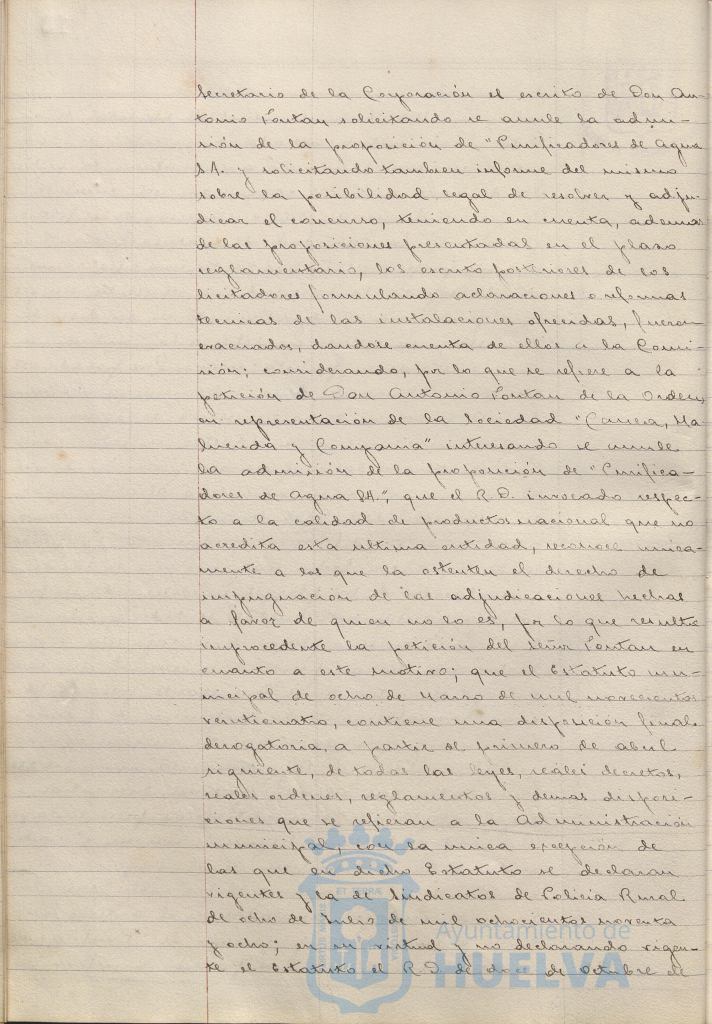 Secretario de la Corporación el escrito de Don An-
tonio Fontan solicitando se anule la admi-
sión de la proposición de "Purificadores de Agua
S A. y solicitando tambien informe del mismo
sobre la posibilidad legal de resolver y adju-
dicar el concurso, teniendo en cuenta, ademas
de las proposiciones presentadas en el plazo
reglamentario, los escrito posteriores de los
licitadores formulando aclaraciones o reformas
tecnicas de las instalaciones ofrecidas, fueron
evacuados, dandose cuenta de ellos a la Comi-
sión; considerando, por lo que se refiere a la
petición de Don Antonio Fontan de la Orden,
en representación de la Sociedad
y Compañia" interesando se anule
la admisión de la proposición de "Purifica-
dores de Agua S A.", que el R. D. invocado respec-
to a la calidad de productos nacional que no
acredita esta ultima entidad, reconoce unica-
mente a los que la ostenten el derecho de
impugnación de las adjudicaciones hechas
a favor de quien no lo es, por lo que resulta
improcedente la petición del señor Fontan en
cuanto a este motivo; que el Estatuto mu-
nicipal de ocho de Marzo de mil novecientos
veinticuatro, contiene una disposición final
derogatoria, a partir de primero de abril
siguiente, de todas las leyes, reales decretos,
reales ordenes, reglamentos y demas disposi-
ciones que se refieran a la Administración
municipal, con la unica excepción de
las que en dicho Estatuto se declaran
vigentes y la de Sindicatos de Policia Rural
de ocho de Julio de mil ochocientos noventa
y ocho; en su virtud y no declarando vigen-
te el Estatuto el R. D. de doce de Octubre de
Ayuntamiento de
HUELVA